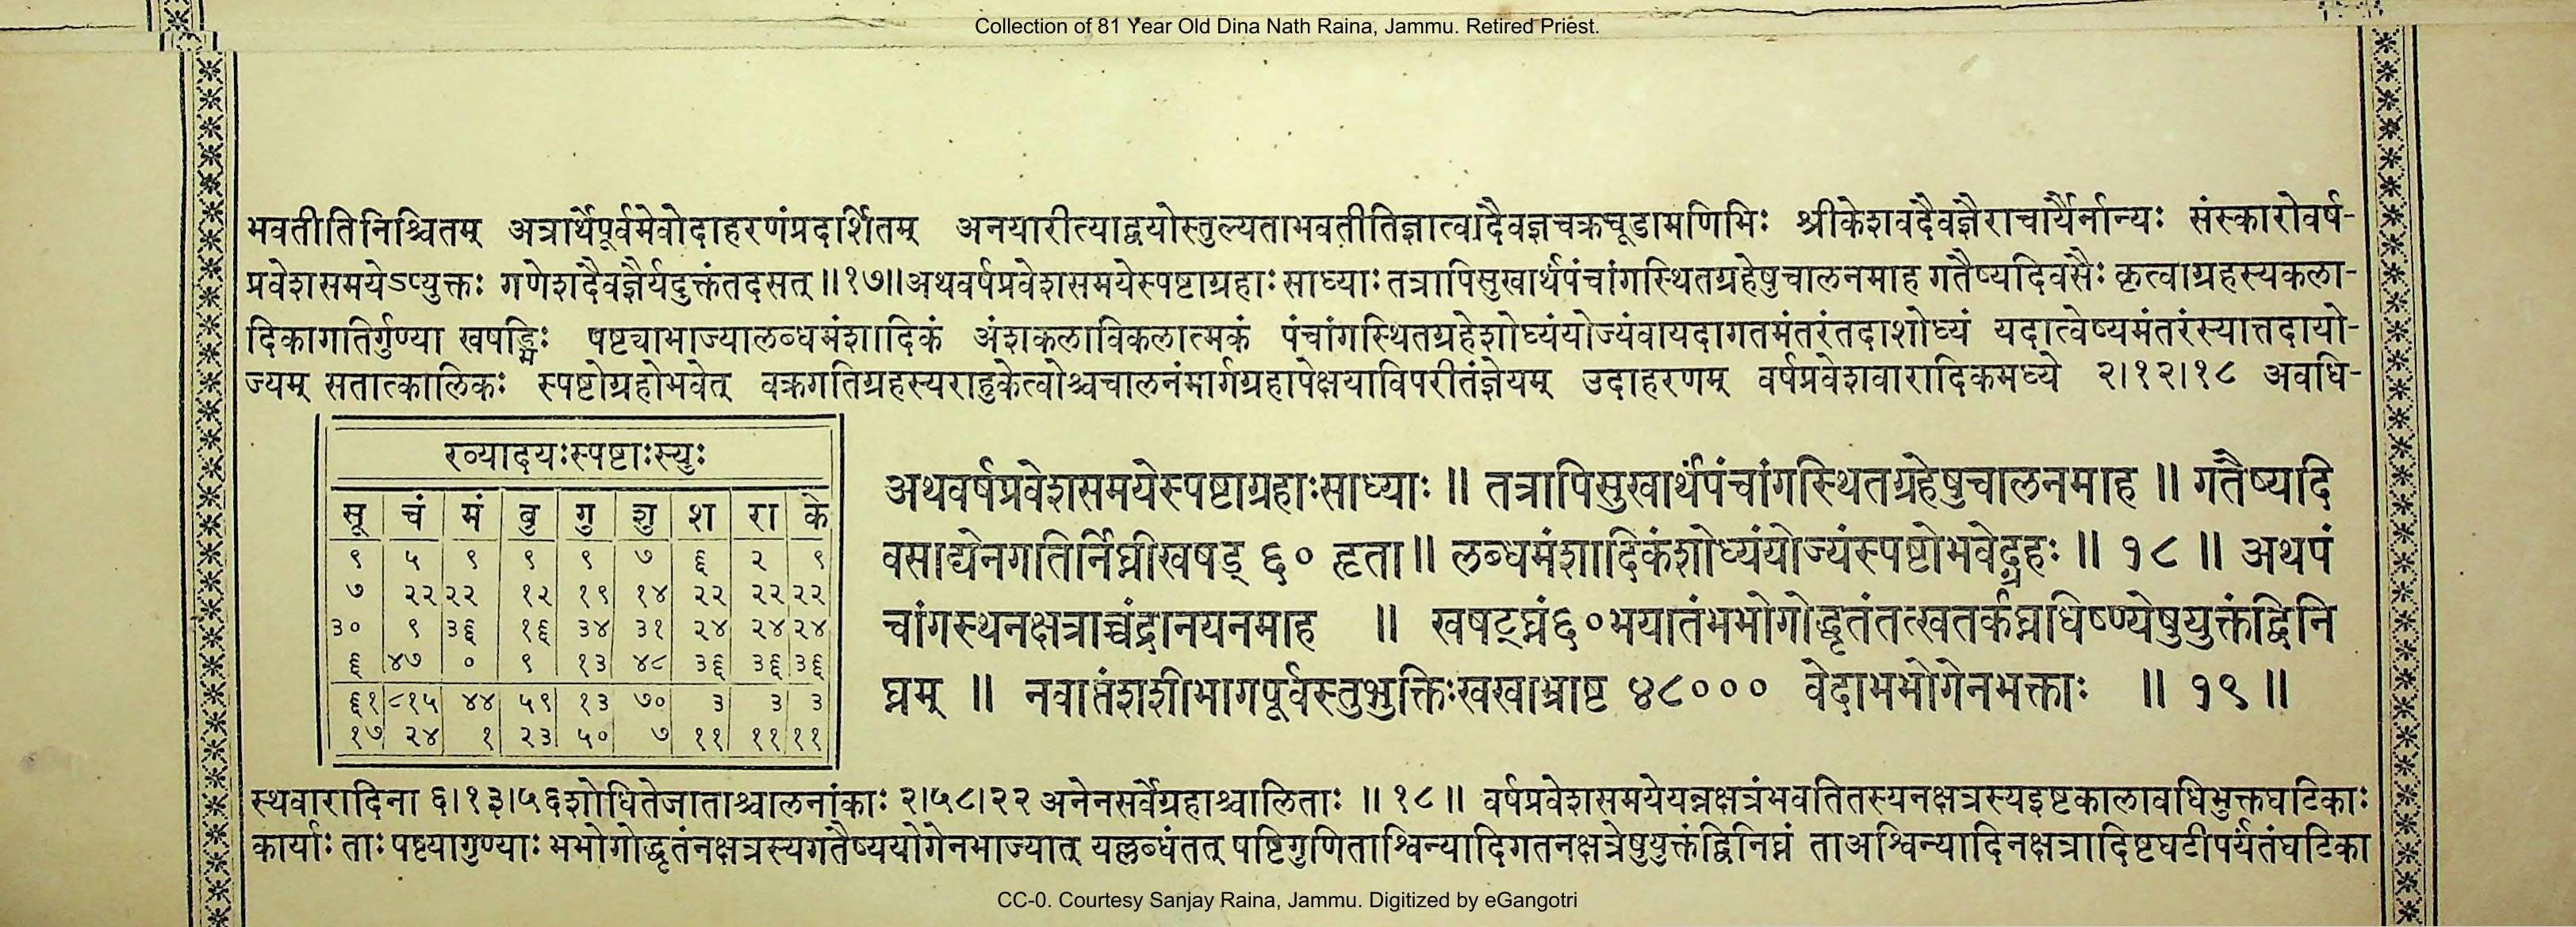 Collection of 81 Year Old Dina Nath Raina, Jammu. Retired Priest.
भवतीतिनिश्चितम् अत्रार्थेपूर्वमेवोदाहरणंप्रदर्शितम् अनयारीत्याद्वयोस्तुल्यताभवतीतिज्ञात्वादैवज्ञचक्रचूडामणिभिः श्रीकेशवदैवज्ञैराचार्यैर्नान्यः संस्कारोवर्ष-
प्रवेशसमयेऽप्युक्तः गणेशदैवज्ञैर्यदुक्तंतदसत् ॥१७॥अथवर्षप्रवेशसमयेस्पष्टाग्रहाः साध्याः तत्रापिसुखार्थंपंचांगस्थितग्रहेषुचालनमाह गतैष्यदिवसैः कृत्वाग्रहस्यकला-
दिकागतिर्गुण्या खषड्भिः षष्ट्याभाज्यालब्धमंशादिकं अंशकलाविकलात्मकं पंचांगस्थितग्रहेशोध्यंयोज्यंवायदागतमंतरंतदाशोध्यं यदात्वेष्यमंतरंस्यात्तदायो-
ज्यम् सतात्कालिकः स्पष्टोग्रहोभवेत् वक्रगतिग्रहस्यराहुकेत्वोश्चचालनंमार्गग्रहापेक्षयाविपरीतंज्ञेयम् उदाहरणम् वर्षप्रवेशवारादिकमध्ये २।१२।१८ अवधि-
रव्यादयःस्पष्टाःस्युः
सू चं मं बु गु शु श रा के
९ ५ ९ ९ ९ ७ ६ २ ९
७ २२ २२ १२ १९ १४ २२ २२ २२
३० ९ ३६ १६ ३४ ३१ २४ २४ २४
६ ४७ ० ९ १३ ४८ ३६ ३६ ३६
६१ ८१५ ४४ ५९ १३ ७० ३ ३ ३
१७ २४ १ २३ ५० ७ ११ ११ ११
अथवर्षप्रवेशसमयेस्पष्टाग्रहाःसाध्याः ॥ तत्रापिसुखार्थंपंचांगस्थितग्रहेषुचालनमाह ॥ गतैष्यदि
वसाद्येनगतिर्निघ्नीखषड् ६० हृता॥ लब्धमंशादिकंशोध्यंयोज्यंस्पष्टोभवेद्ग्रहः ॥ १८ ॥ अथपं
चांगस्थनक्षत्राच्चंद्रानयनमाह ॥ खषट्घ्नं६०भयातंभभोगोद्धृतंतत्खतर्कघ्नधिष्ण्येषुयुक्तंद्विनि
घ्नम् ॥ नवाप्तंशशीभागपूर्वस्तुभुक्तिःखखाभ्राष्ट ४८००० वेदाभभोगेनभक्ताः ॥ १९ ॥
स्थवारादिना ६।१३।५६शोधितेजाताश्चालनांकाः २।५८।२२ अनेनसर्वेग्रहाश्चालिताः ॥ १८॥ वर्षप्रवेशसमयेयन्नक्षत्रंभवतितस्यनक्षत्रस्यइष्टकालावधिभुक्तघटिकाः
कार्याः ताः षष्ट्यागुण्याः भभोगोद्धृतंनक्षत्रस्यगतैष्ययोगेनभाज्यात् यल्लब्धंतत् षष्टिगुणिताश्विन्यादिगतनक्षत्रेषुयुक्तंद्विनिघ्नं ताअश्विन्यादिनक्षत्रादिष्टघटीपर्यंतंघटिका
CC-0. Courtesy Sanjay Raina, Jammu. Digitized by eGangotri